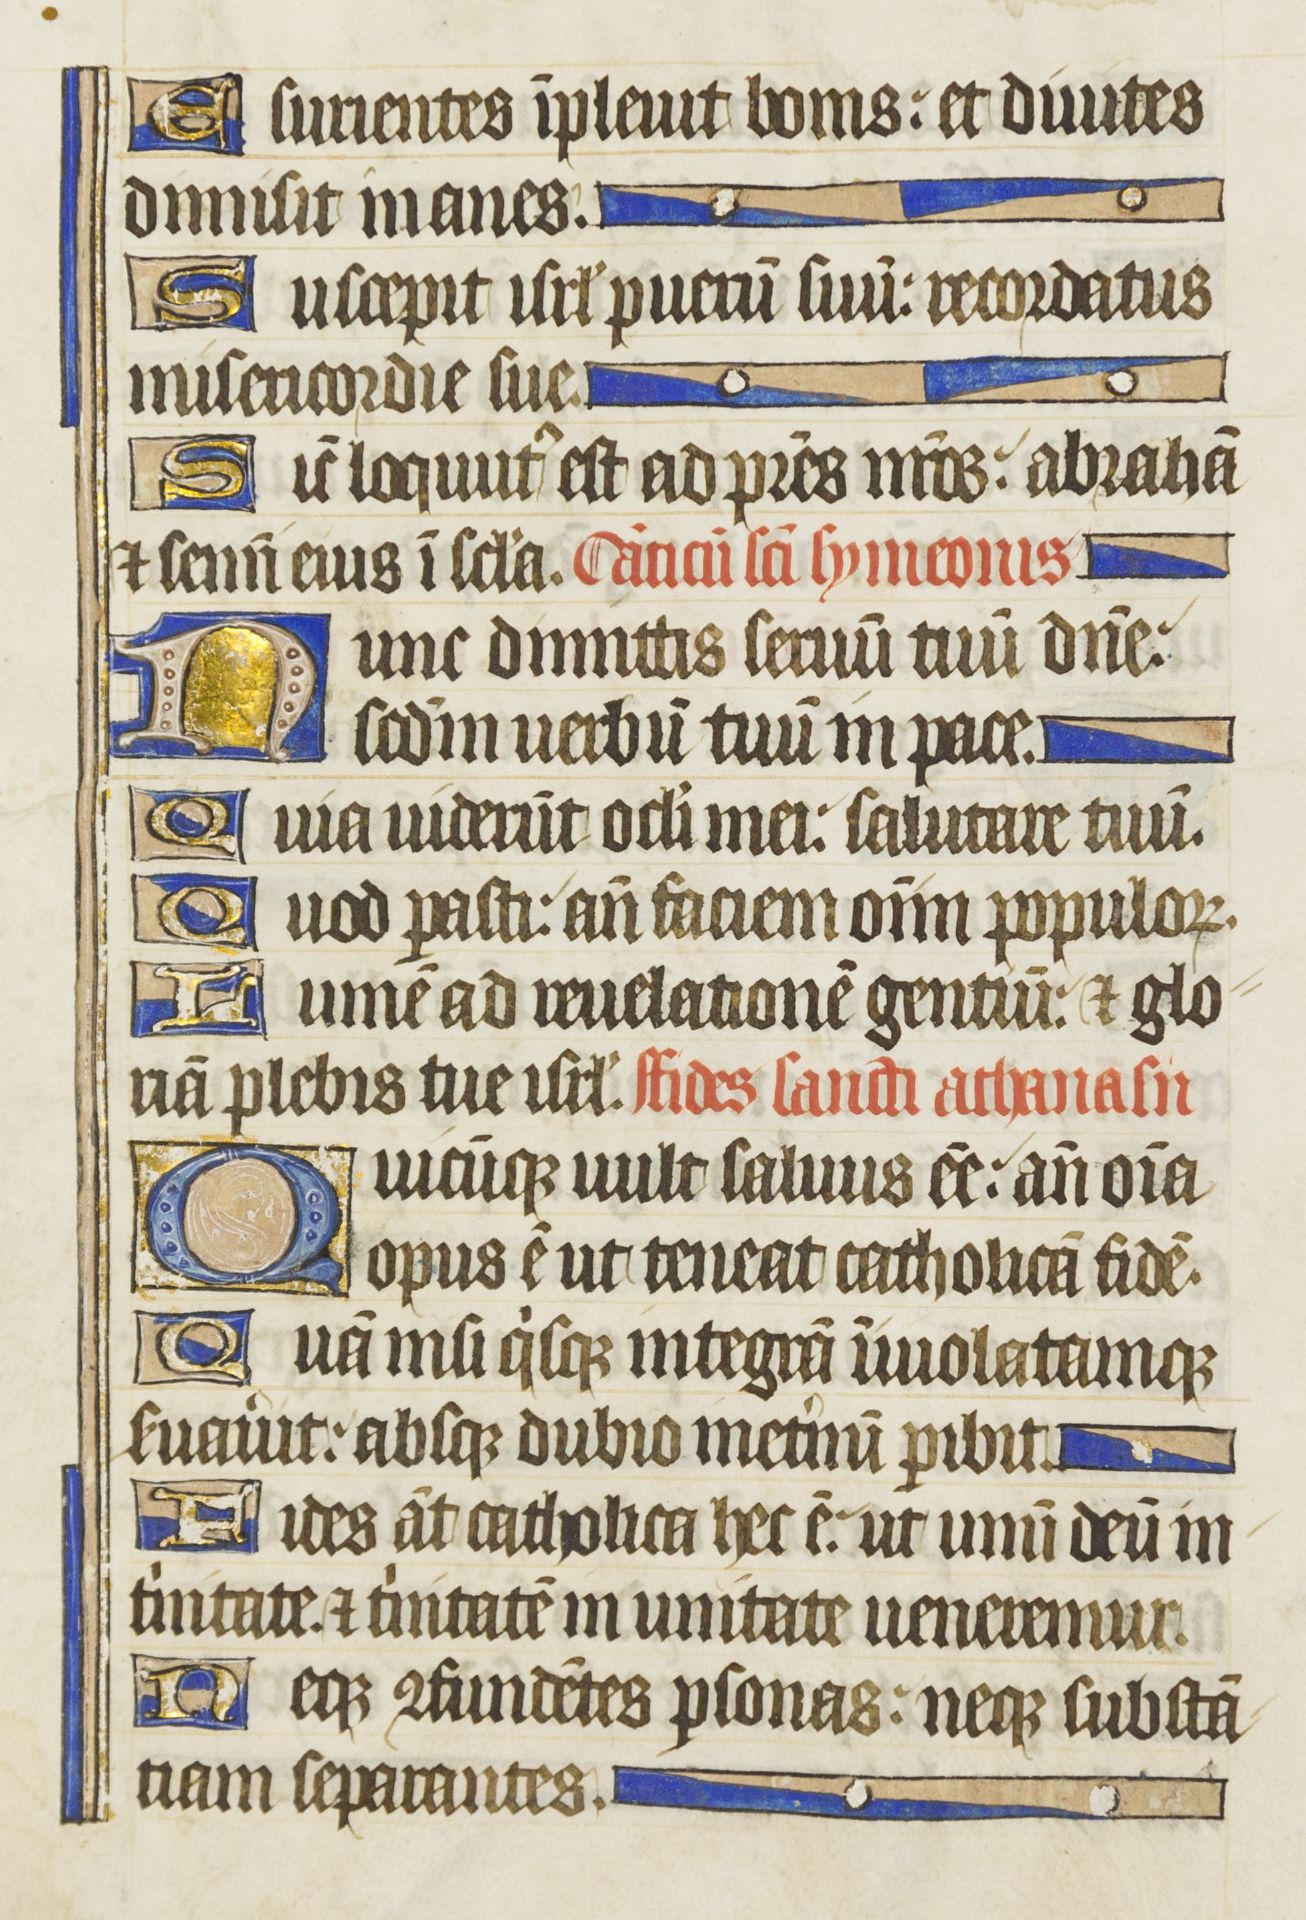 Esurientes īpleuit bonis: et diuites
dimisit inanes.
Suscepit isrl̓ puerū suū: recordatus
misericordie sue.
Sic̄ locutꝰ est ad pr̄es nr̄os: abrahā
⁊ semī eius ī scl̓a. Cāticū sc̄i symeonis
Nunc dimittis seruū tuū dn̄e:
scd̄m uerbū tuū in pace.
Quia uiderūt ocl̓i mei: salutare tuū.
Quod ꝑasti: an̄ faciem oīm populoꝝ.
Lumē ad reuelationē gentiū: ⁊ glo
riā plebis tue isrl̓. ffides sancti athanasii
Quicūqꝫ uult saluus ēē: an̄ oīa
opus ē ut teneat catholicā fidē.
Quā nisi qͥsqꝫ integrā īuiolatamqꝫ
ẜuauͥit: absqꝫ dubio in etͥnū ꝑibit.
Fides āt catholica hec ē: ut unū deū in
tͥnitate. ⁊ tͥnitatē in unitate ueneremur.
Neqꝫ ꝯfundētes ꝑsonas: neqꝫ substā
tiam separantes.